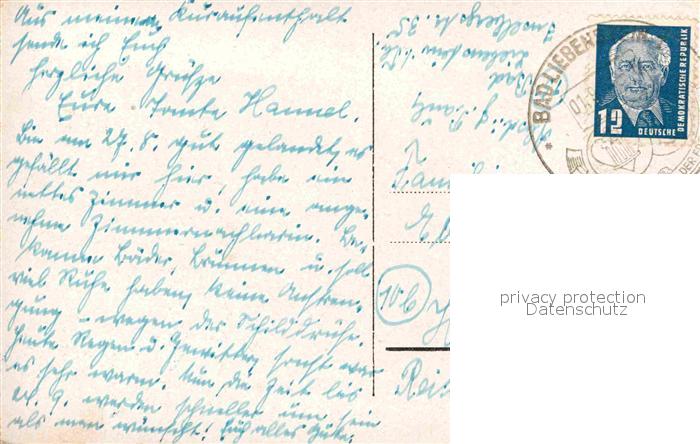 Aus meinem Kuraufenthalt
sende ich Euch
herzliche Grüße
Eure Tante Hannel.
Bin am 27.8. gut gelandet, es
gefällt mir hier, habe ein
nettes Zimmer u. eine ange-
nehme Zimmernachbarin. Be-
komme Bäder, Brunnen u. soll
viel Ruhe haben, keine Anstren-
gung – wegen der Schilddrüse.
Heute Regen u. Gewitter, sonst war
es sehr warm. Nun die Zeit bis
9. werden schneller um sein
als man wünscht! Euch alles Gute.
Bad
BAD LIEBEN
12
DEUTSCHE
DEMOKRATISCHE REPUBLIK
Fam
10b
privacy protection
Datenschutz